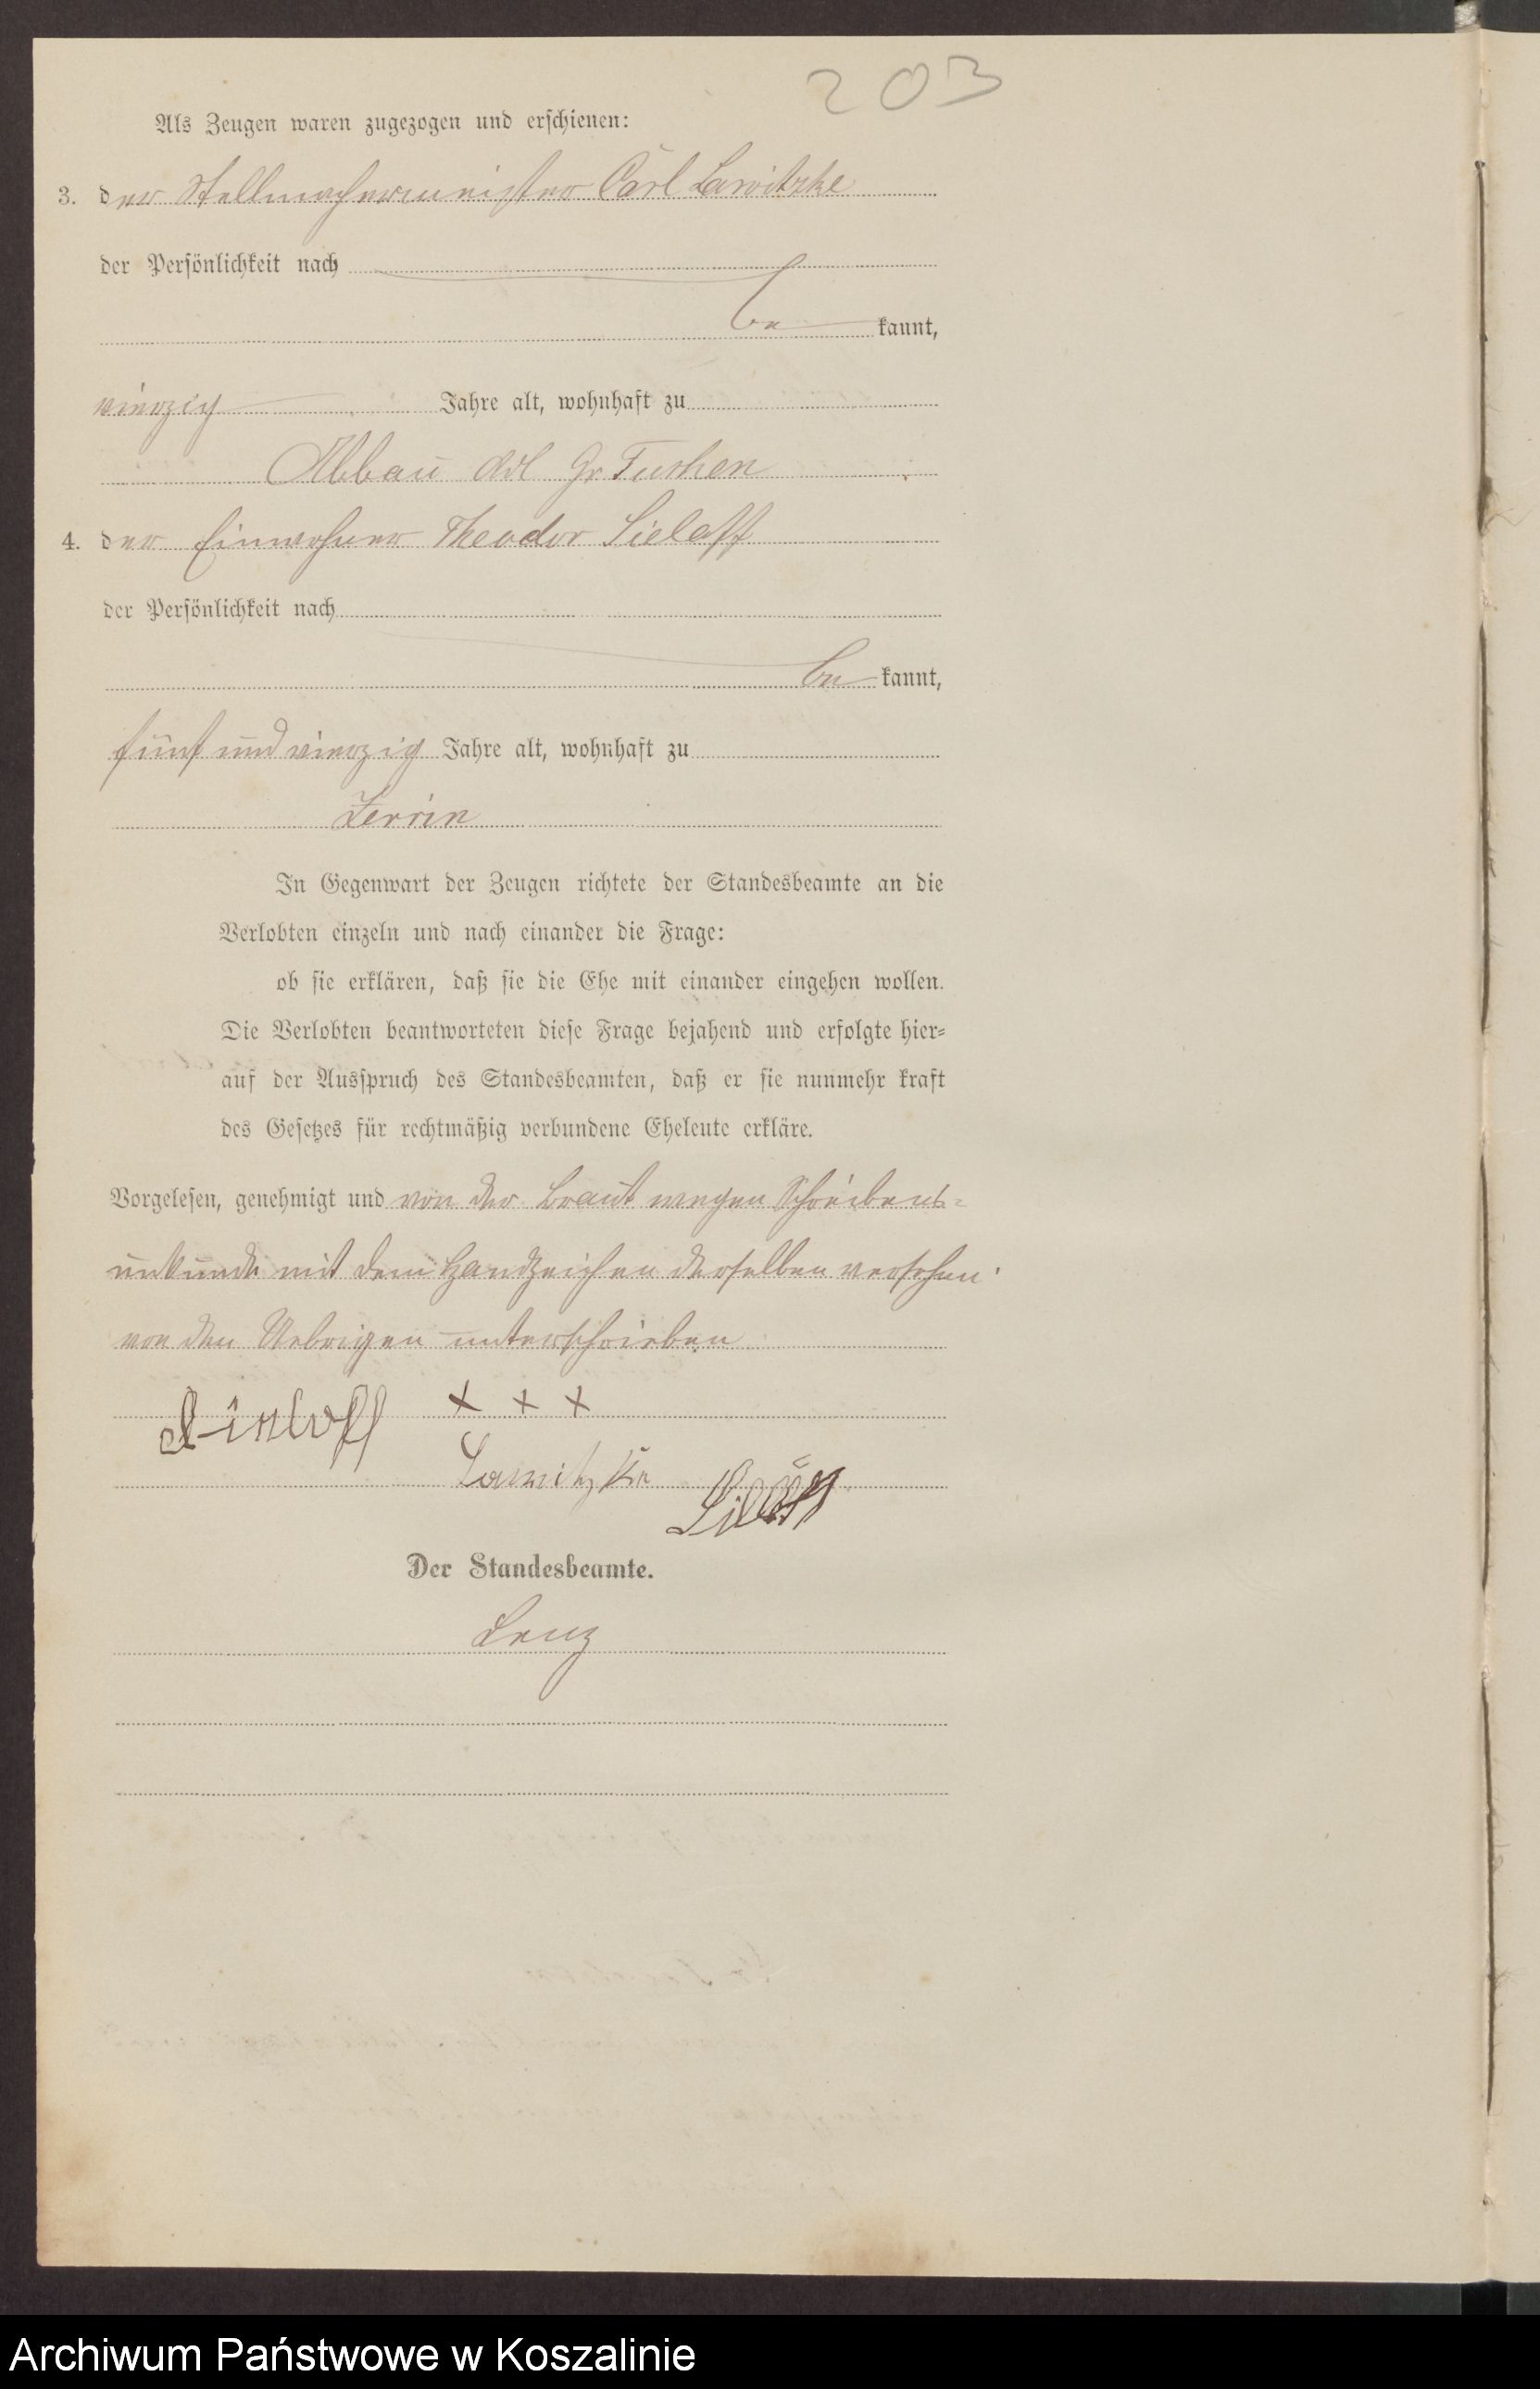 203
Als Zeugen waren zugezogen und erschienen:
3. der Stellmachermeister Carl Lawitzke
der Persönlichkeit nach
be kannt,
vierzig Jahre alt, wohnhaft zu
Abbau Adl Gr. Tuchen
4. der Einwohner Theodor Sieloff
der Persönlichkeit nach
be kannt,
fünf und vierzig Jahre alt, wohnhaft zu
Zerrin
In Gegenwart der Zeugen richtete der Standesbeamte an die
Verlobten einzeln und nach einander die Frage:
ob sie erklären, daß sie die Ehe mit einander eingehen wollen.
Die Verlobten beantworteten diese Frage bejahend und erfolgte hier-
auf der Ausspruch des Standesbeamten, daß er sie nunmehr kraft
des Gesetzes für rechtmäßig verbundene Eheleute erkläre.
Vorgelesen, genehmigt und von der Braut wegen Schreibens-
unkunde mit dem Handzeichen derselben versehen
von den Uebrigen unterschrieben
+ + +
Lawitzke Sieloff
Der Standesbeamte.
Lenz
Archiwum Państwowe w Koszalinie